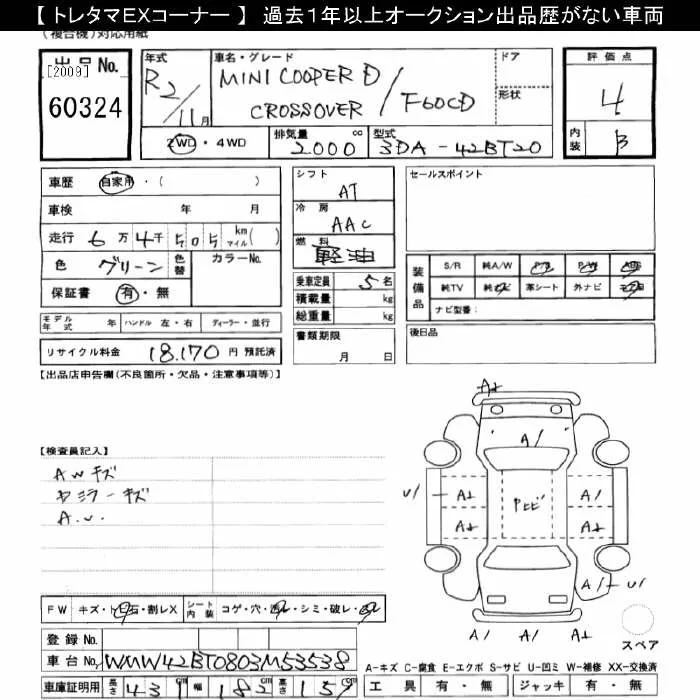 【 トレタマEXコーナー 】 過去１年以上オークション出品歴がない車両
(複合機)対応用紙
出品No.
[2009]
60324
年式
R2/11月
車名・グレード
MINI COOPER D
CROSSOVER / F60CD
ドア
形状
評価点
4
内装
B
2WD・4WD
排気量
2000 cc
型式
3DA-42BT20
車歴 自家用・( )
車検 年 月
走行 6万4千505 km マイル( )
色 グリーン 色替 カラーNo.
保証書 有・無
シフト
AT
冷房
AAC
燃料
軽油
乗車定員 5名
積載量 kg
総重量 kg
書類期限
月 日
セールスポイント
装備品
S/R 純A/W P/S P/W ABS
純TV 純ナビ 革シート 外ナビ
ナビ型番：
後日品
モデル年式 年 ハンドル 左・右 ディーラー・並行
リサイクル料金 18,170円 預託済
【出品店申告欄(不良箇所・欠品・注意事項等)】
【検査員記入】
AWキズ
ヤミラーキズ
A.U.
A/
U/
Pヒビ
FW キズ・ 石・割レX
シート内装 コゲ・穴・ ・シミ・破レ・
登録No.
車台No. WMW42BT0803M53538
車庫証明用 長さ 431cm 幅 182cm 高さ 159
スペア
A-キズ C-腐食 E-エクボ S-サビ U-凹ミ W-補修 XX-交換済
工具 有・無 ジャッキ 有・無